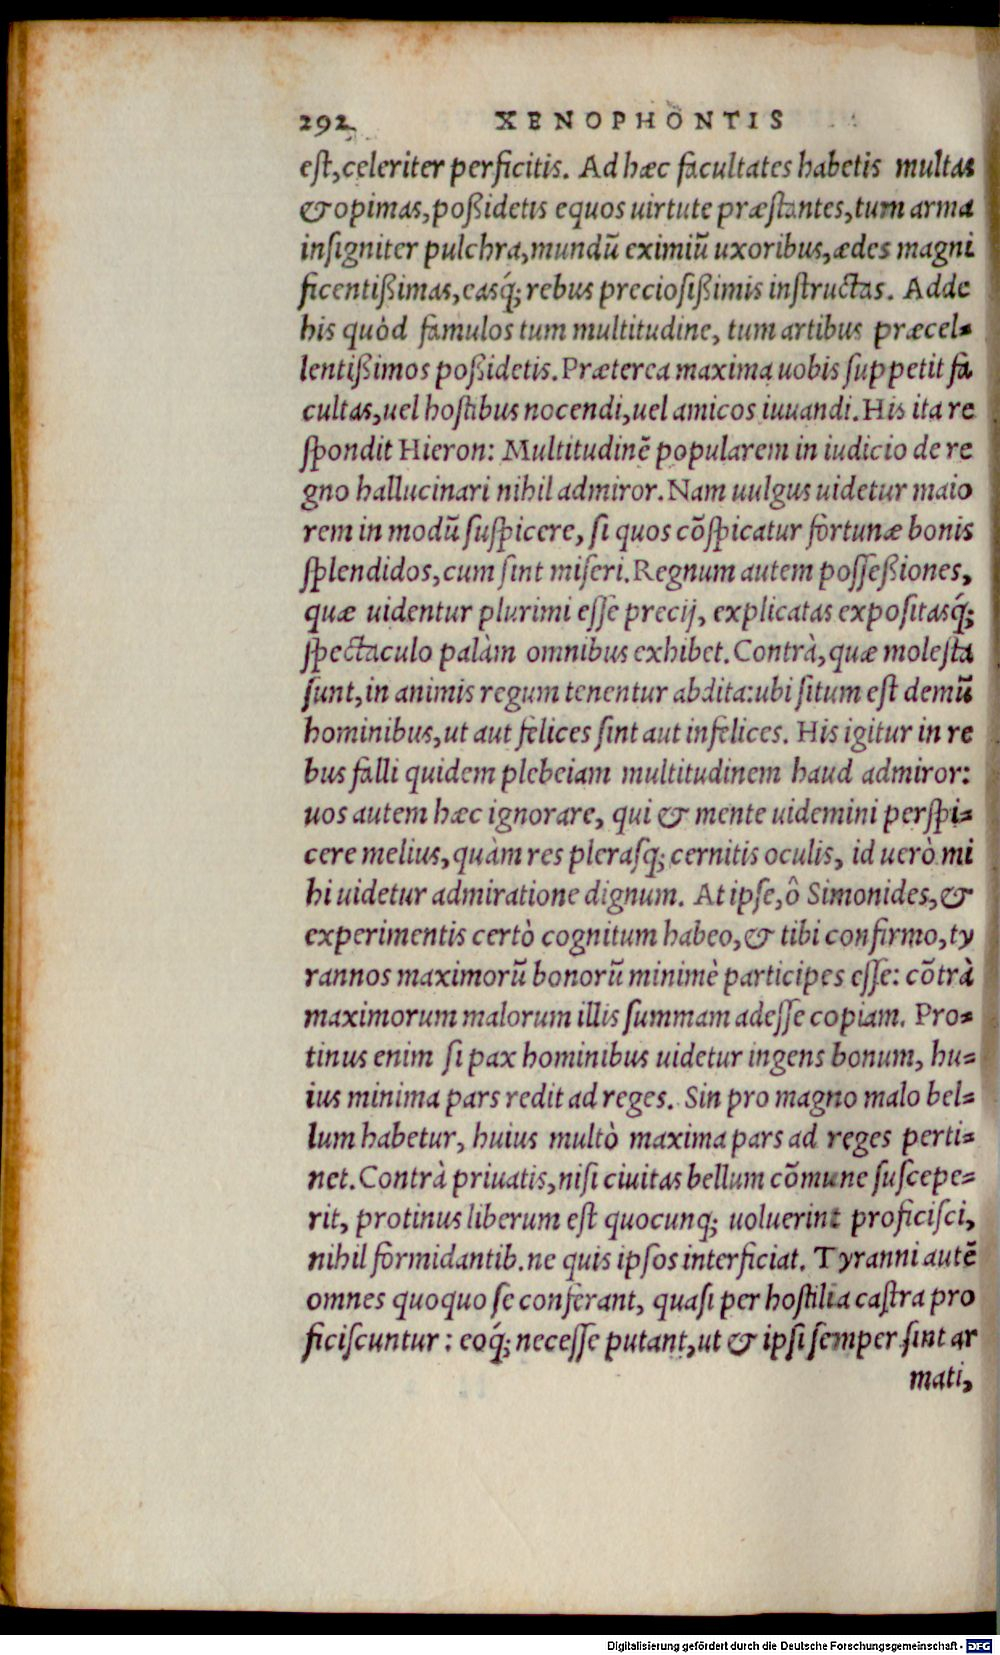 292 XENOPHONTIS
est, celeriter perficitis. Ad hæc facultates habetis multas
& opimas, poßidetis equos uirtute præstantes, tum arma
insigniter pulchra, mundū eximiū uxoribus, ædes magni
ficentißimas, easq́; rebus preciosißimis instructas. Adde
his quòd famulos tum multitudine, tum artibus præcel=
lentißimos poßidetis. Præterea maxima uobis suppetit fa
cultas, uel hostibus nocendi, uel amicos iuuandi. His ita re
spondit Hieron: Multitudinē popularem in iudicio de re
gno hallucinari nihil admiror. Nam uulgus uidetur maio
rem in modū suspicere, si quos cōspicatur fortunæ bonis
splendidos, cum sint miseri. Regnum autem posseßiones,
quæ uidentur plurimi esse precij, explicatas expositasq́;
spectaculo palàm omnibus exhibet. Contrà, quæ molesta
sunt, in animis regum tenentur abdita: ubi situm est demū
hominibus, ut aut felices sint aut infelices. His igitur in re
bus falli quidem plebeiam multitudinem haud admiror:
uos autem hæc ignorare, qui & mente uidemini perspi=
cere melius, quàm res plerasq; cernitis oculis, id uerò mi
hi uidetur admiratione dignum. At ipse, ô Simonides, &
experimentis certò cognitum habeo, & tibi confirmo, ty
rannos maximorū bonorū minimè participes esse: cōtrà
maximorum malorum illis summam adesse copiam. Pro=
tinus enim si pax hominibus uidetur ingens bonum, hu=
ius minima pars redit ad reges. Sin pro magno malo bel=
lum habetur, huius multò maxima pars ad reges perti=
net. Contrà priuatis, nisi ciuitas bellum cōmune suscepe=
rit, protinus liberum est quocunq; uoluerint proficisci,
nihil formidantib. ne quis ipsos interficiat. Tyranni autē
omnes quoquo se conferant, quasi per hostilia castra pro
ficiscuntur: eoq́; necesse putant, ut & ipsi semper sint ar
mati,
Digitalisierung gefördert durch die Deutsche Forschungsgemeinschaft - DFG